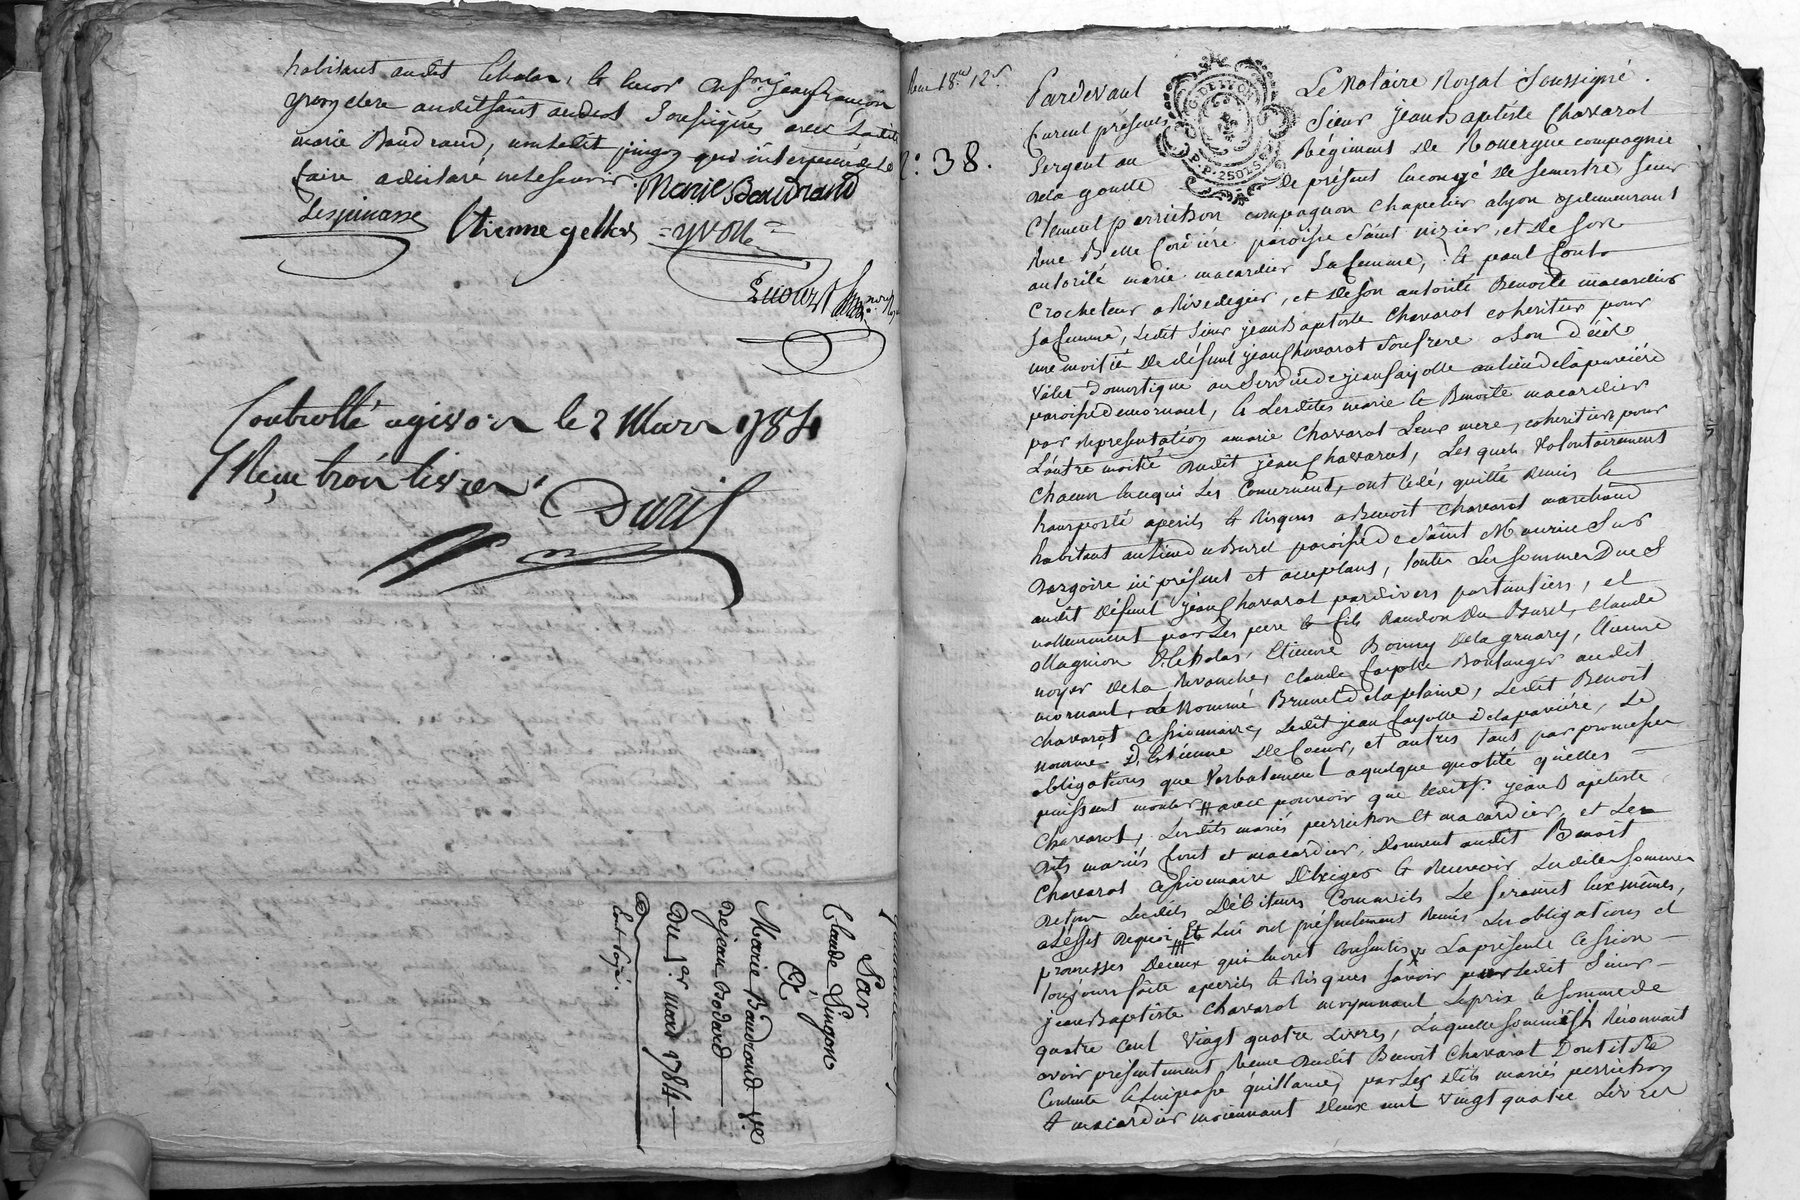 habitant audit
yvon clerc audit saint andeol soussignés avec ladite
marie Baudrand, non ledit pingon qui interpellé de le
faire a declaré ne le scavoir.
Marie Baudrand
Lespinasse Etienne gellas =yvon=
Controllé a givors le 2 Mars 1784
Reçu trois livres
Par
Claude Pingon
À
Marie Baudrand Ve
De jean Bodard
Du 1er mars 1784
N°. 38.
G. DE LYON
P.P. 2 SOLS
Pardevant Le Notaire Royal Soussigné.
furent présents Sieur jean Baptiste Chavarot
Sergent au Régiment de Rouergue compagnie
de la goutte de présent en congé de semestre, sieur
Clement perrichon compagnon chapelier a lyon y demeurant
Rue Belle Cordiére paroisse Saint nizier, et de son
autorité marie macardier sa femme, & paul font
Crocheteur a Rivedegier, et de son autorité Benoite macardier
sa femme, Ledit Sieur jean Baptiste Chavarot coheritier pour
une moitié de défunt jean Chavarot son frere a son décès
valet domestique au Service de jean fayolle au lieu de la
paroisse de mornant, & Lesdites marie & Benoite macardier
par representation a marie Chavarot Leur mere, coheritieres pour
L'autre moitié dudit jean Chavarot, Lesquels Volontairement
chacun en ce qui Les Concernent, ont cédé, quitté remis &
transporté a perils & Risques a Benoit Chavarot marchand
habitant au lieu du Burel paroisse de Saint Maurice Sur
Dargoire ici présent et acceptant, toutes Les sommes Dues
audit défunt jean Chavarot par divers particuliers, et
nottamment par Les pere & fils Randon Du Burel, Claude
Magnion Etienne Bonny
noyer de la Revanche, Claude fayolle Boulanger audit
mornant, Le nommé Brunel de la plaine, Ledit Benoit
Chavarot Cessionnaire, Ledit jean fayolle De la, Le
nommé D'Estienne de Coeur, et autres tant par promesses
obligations que Verbalement a quelque quotité qu'elles
puissent monter # avec pouvoir que ledit Sr. jean Baptiste
Chavarot, Lesdits mariés perrichon et macardier, et Les
dits mariés font et macardier, donnent audit Benoit
Chavarot Cessionnaire D'Exiger & Recevoir Lesdites sommes
Desdits Débiteurs comme ils Le feroient Eux mêmes,
a L'effet de quoi Lui ont présentement Remis Les obligations et
promesses de ceux qui en ont consenties La présente Cession
toujours faite a perils & Risques savoir par ledit Sieur
jean Baptiste Chavarot moyennant Le prix & somme de
quatre cent Vingt quatre Livres, Laquelle somme il Reconnait
avoir présentement Reçue dudit Benoit Chavarot Dont il se
Contente & Lui passe quittance, par Les dits mariés perrichon
& macardier moiennant Deux cent vingt quatre Livres